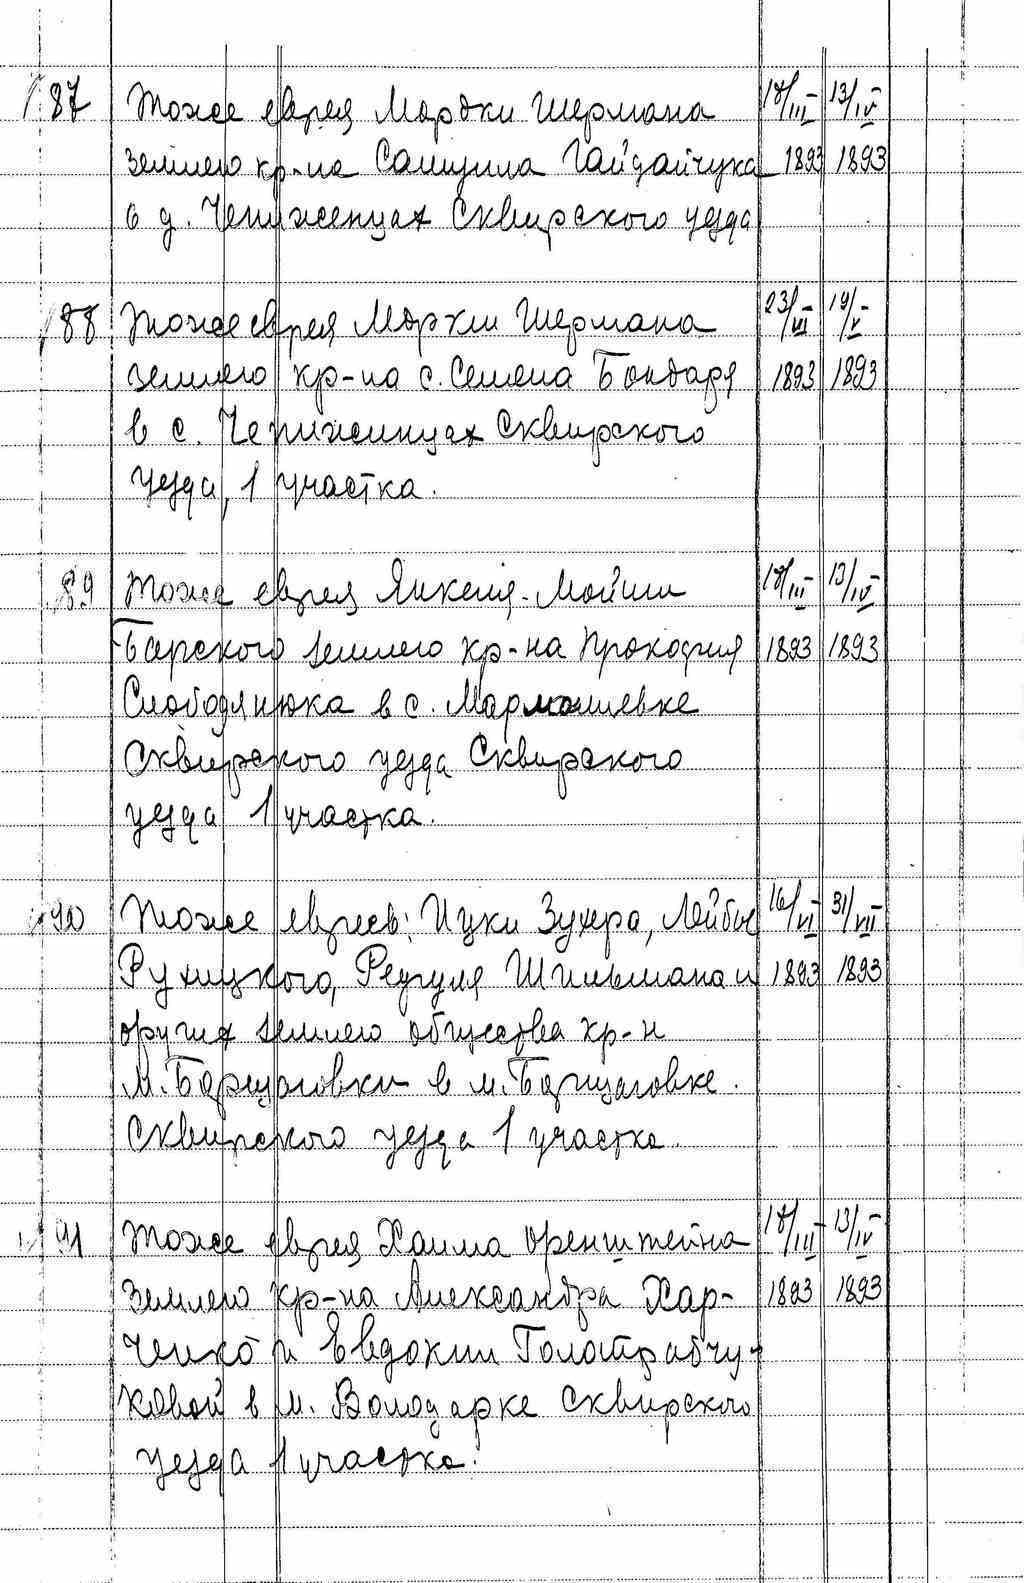 87 Тоже еврея Мордки Шермана 18/III 13/IV
землею кр-на Самуила Гайдайчука 1893 1893
в д. Чепиженцах Сквирского уезда
88 Тоже еврея Моркии Шермана 23/III 19/V
землею кр-на с. Семена Бондаря 1893 1893
в с. Чепиженцах Сквирского
уезда, 1 участка.
89 Тоже еврея Янкеля-Мойши 18/III 13/IV
Барского землею кр-на Прокофия 1893 1893
Слободянюка в с. Мармолиевке
Сквирского уезда Сквирского
уезда 1 участка.
90 Тоже евреев: Ицки Зухера, Лейбы 16/VI 31/VII
Ружицкого, Регуля Шильмана и 1893 1893
других землею общества кр-н
м. Борщаговки в м. Борщаговке.
Сквирского уезда 1 участка.
91 Тоже еврея Хаима Оренштейна 18/III 13/IV
землею кр-на Александра Хар-
1893 1893
ченко и Евдокии Голотрабчу-
ковой в м. Володарке Сквирского
уезда 1 участка.